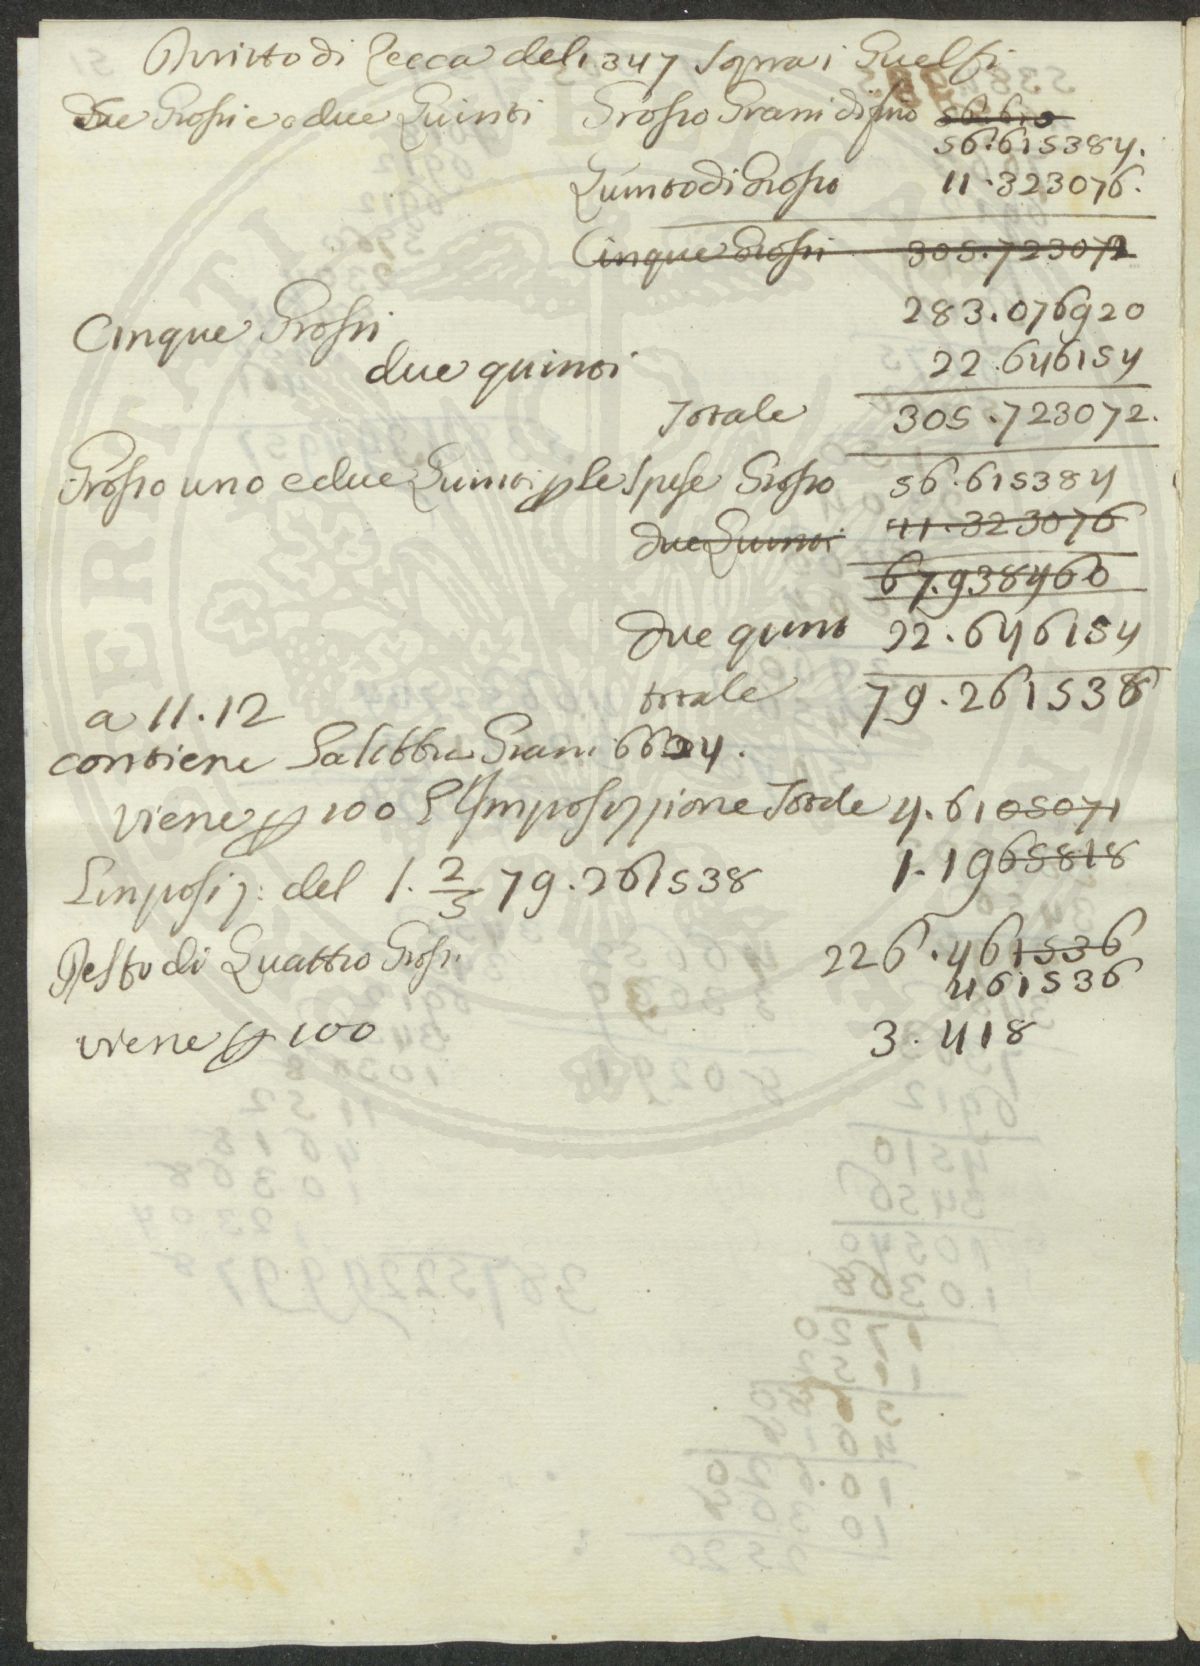 Diritto di Zecca del 1347 sopra i Guelfi
Due Grossi e due Quinti Grosso Grani di fino 56.615
56.615384.
Quinto di Grosso 11.323076.
Cinque Grossi 305.723072
283.076920
Cinque Grossi
due quinti 22.646154
Totale 305.723072.
Grosso uno e due Quinti ple Spese Grosso 56.615384
due Quinti 11.323076
67.938460
due quinti 22.646154
totale 79.261538
a 11.12
contiene La libbra Grani 6624.
viene p 100 L'Imposizzione Totale 4.6105071
L'imposiz: del 1. 2/5 79.261538 1.1965818
Resto di Quattro Grossi 226.461536
461536
viene p 100 3.418